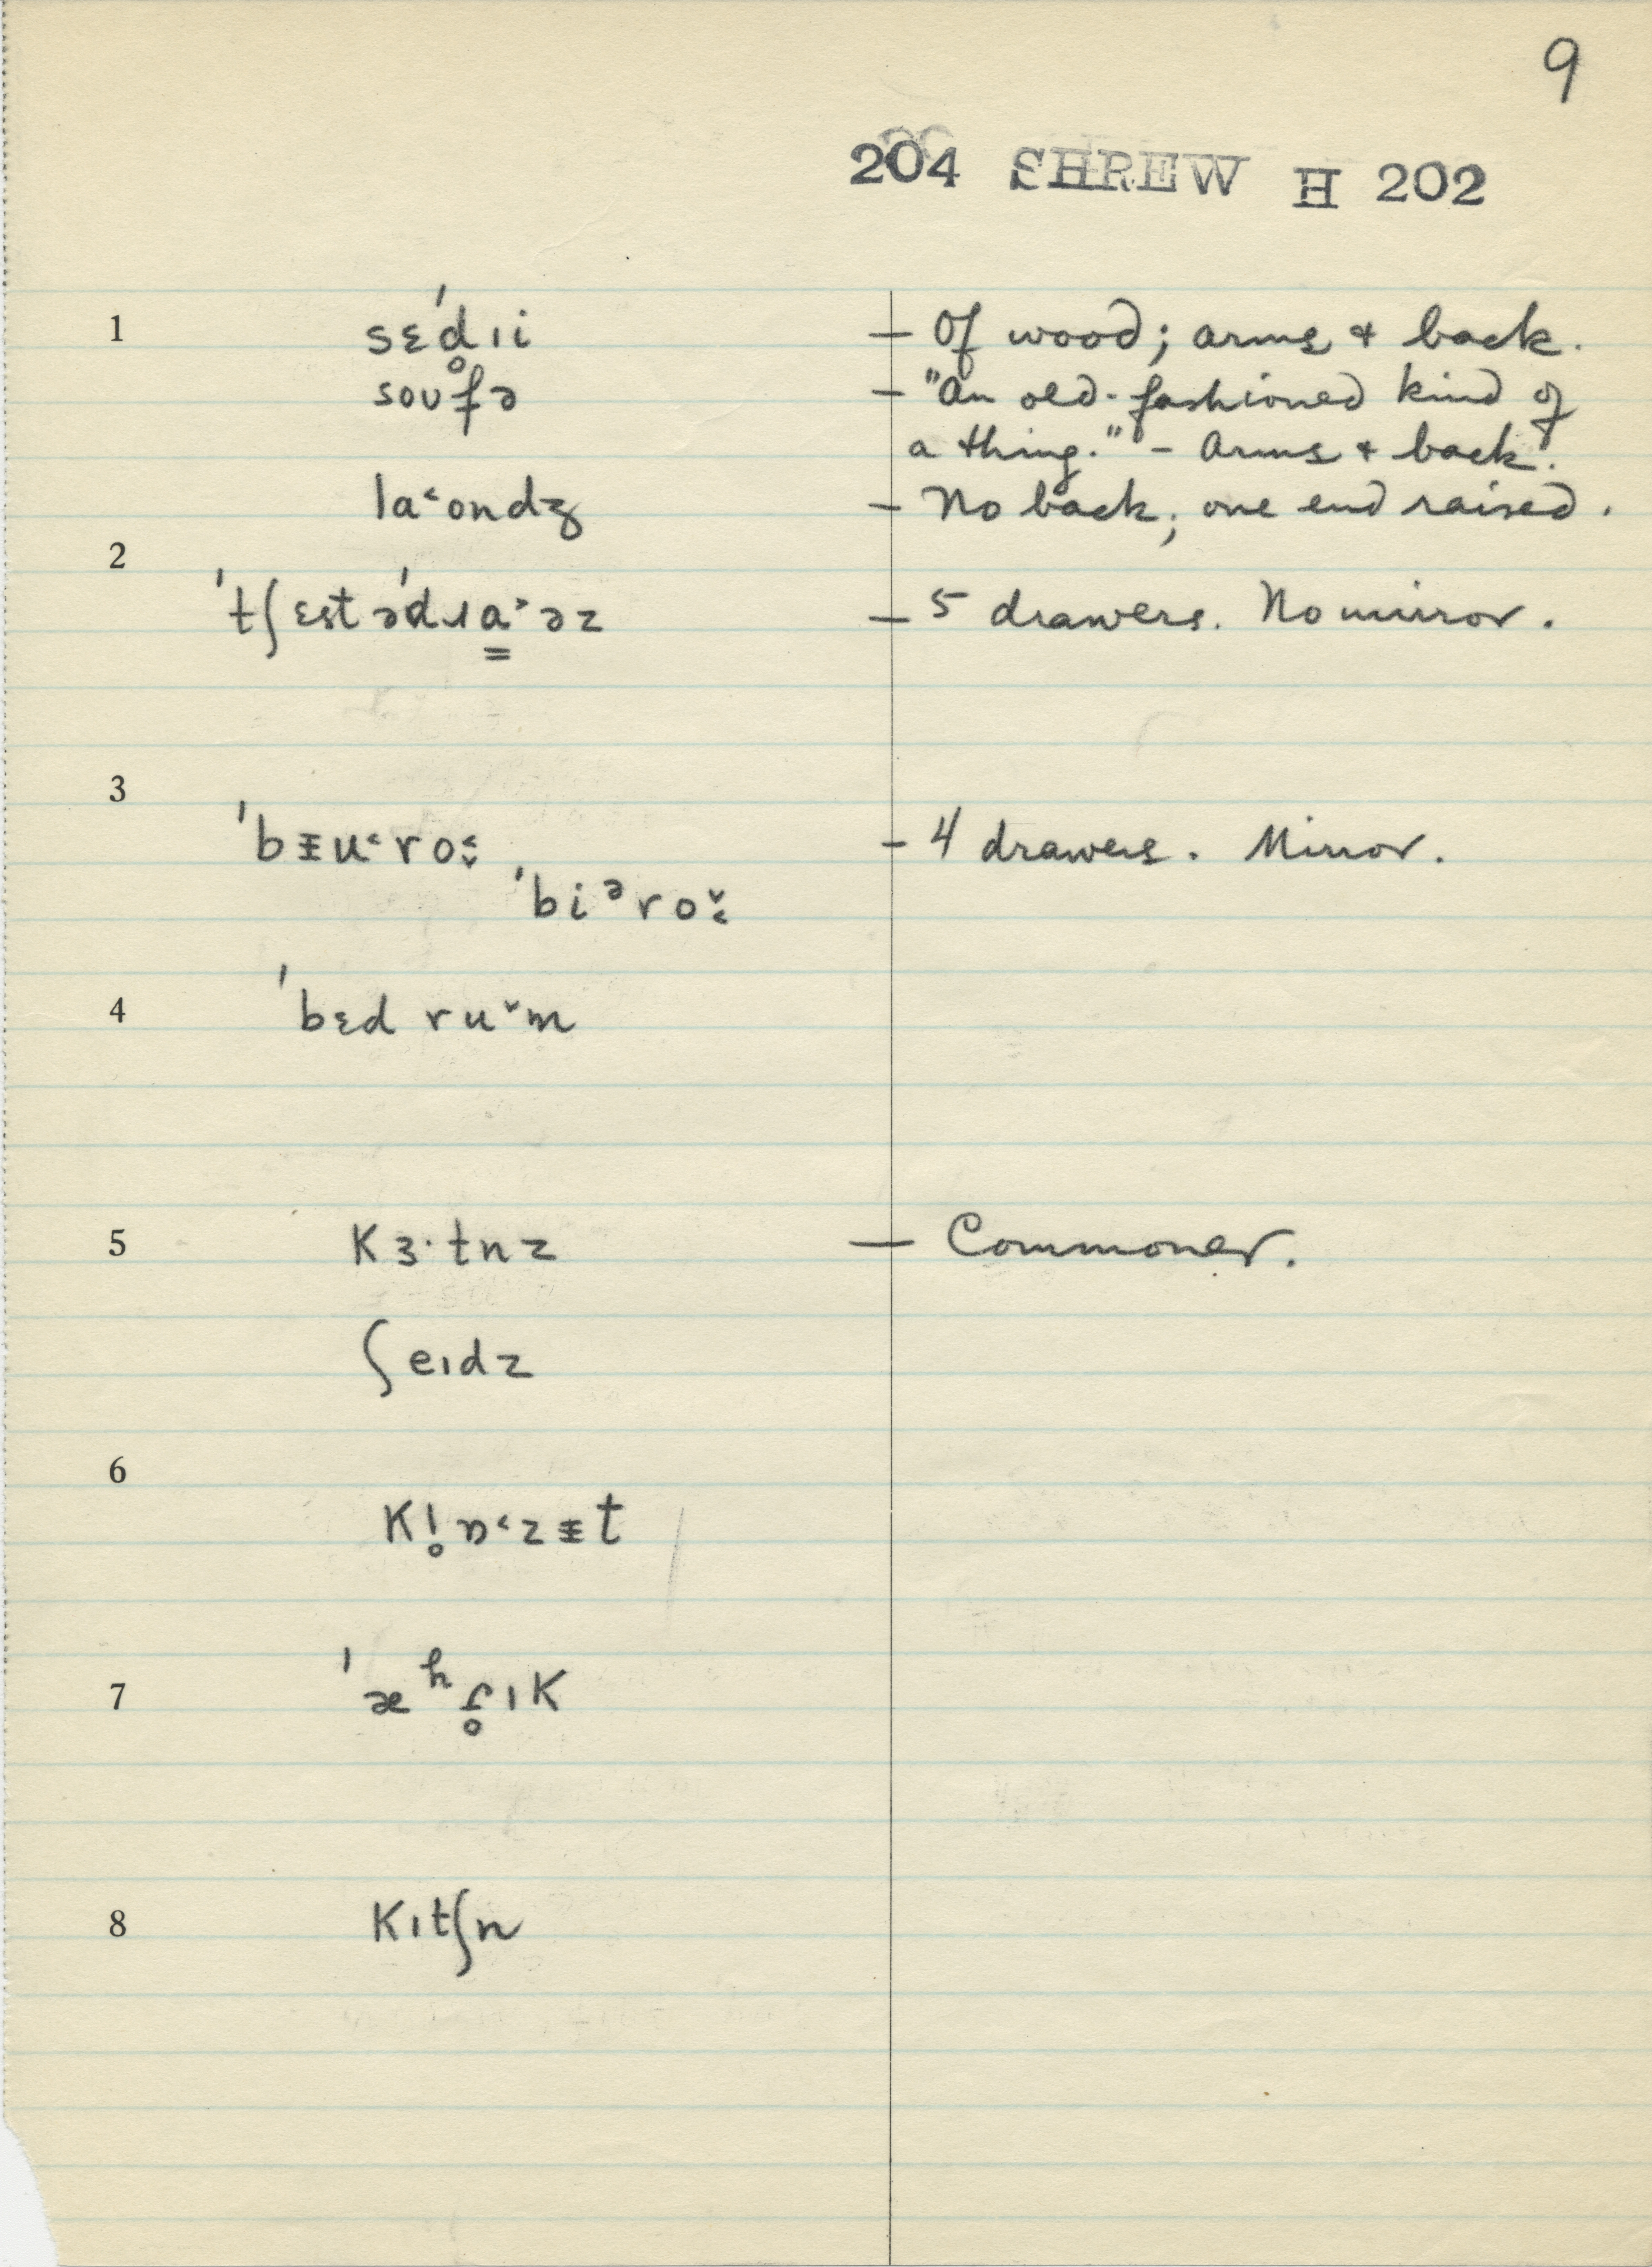 9
204 SHREW H 202
1 sɛˈd̥ɪi — Of wood; arms + back.
soufə — "An old-fashioned kind of
a thing." — Arms + back.
la˂ondʒ — No back; one end raised.
2 ˈtʃɛst əˈdɹa̳˃əz — 5 drawers. No mirror.
3 ˈbɪ̵u˂ro˂̬ — 4 drawers. Mirror.
ˈbiᵊro˅˂
4 ˈbɛd ru˅m
5 Kɜ·tnz — Commoner.
ʃeɪdz
6 Kl̥ɒ˂zɪ̵t
7 ˈæʰɾ̥ɪK
8 Kɪtʃn